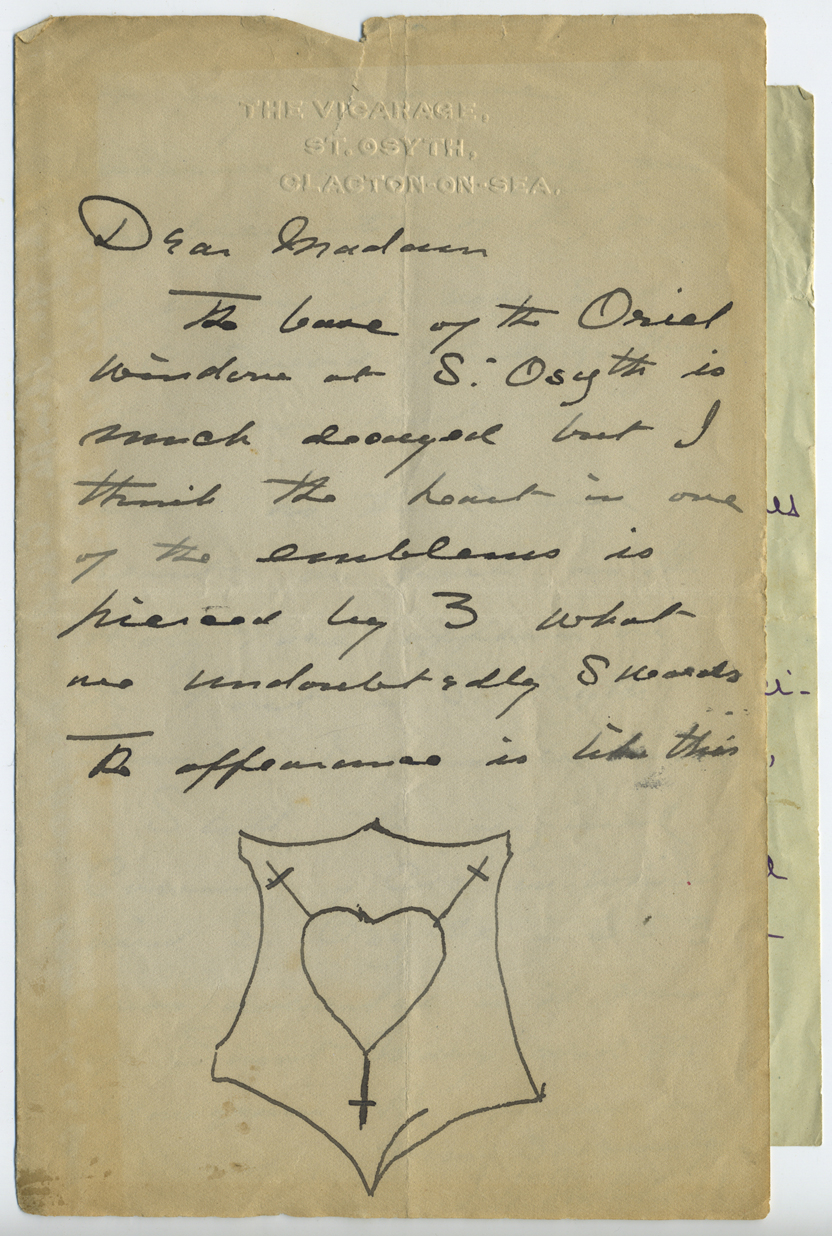 THE VICARAGE,
ST. OSYTH,
CLACTON-ON-SEA.
Dear Madam
The base of the Oriel
window at St. Osyth is
much decayed but I
think the heart in one
of the emblems is
pierced by 3 what
are undoubtedly Swords
The appearance is like this
es